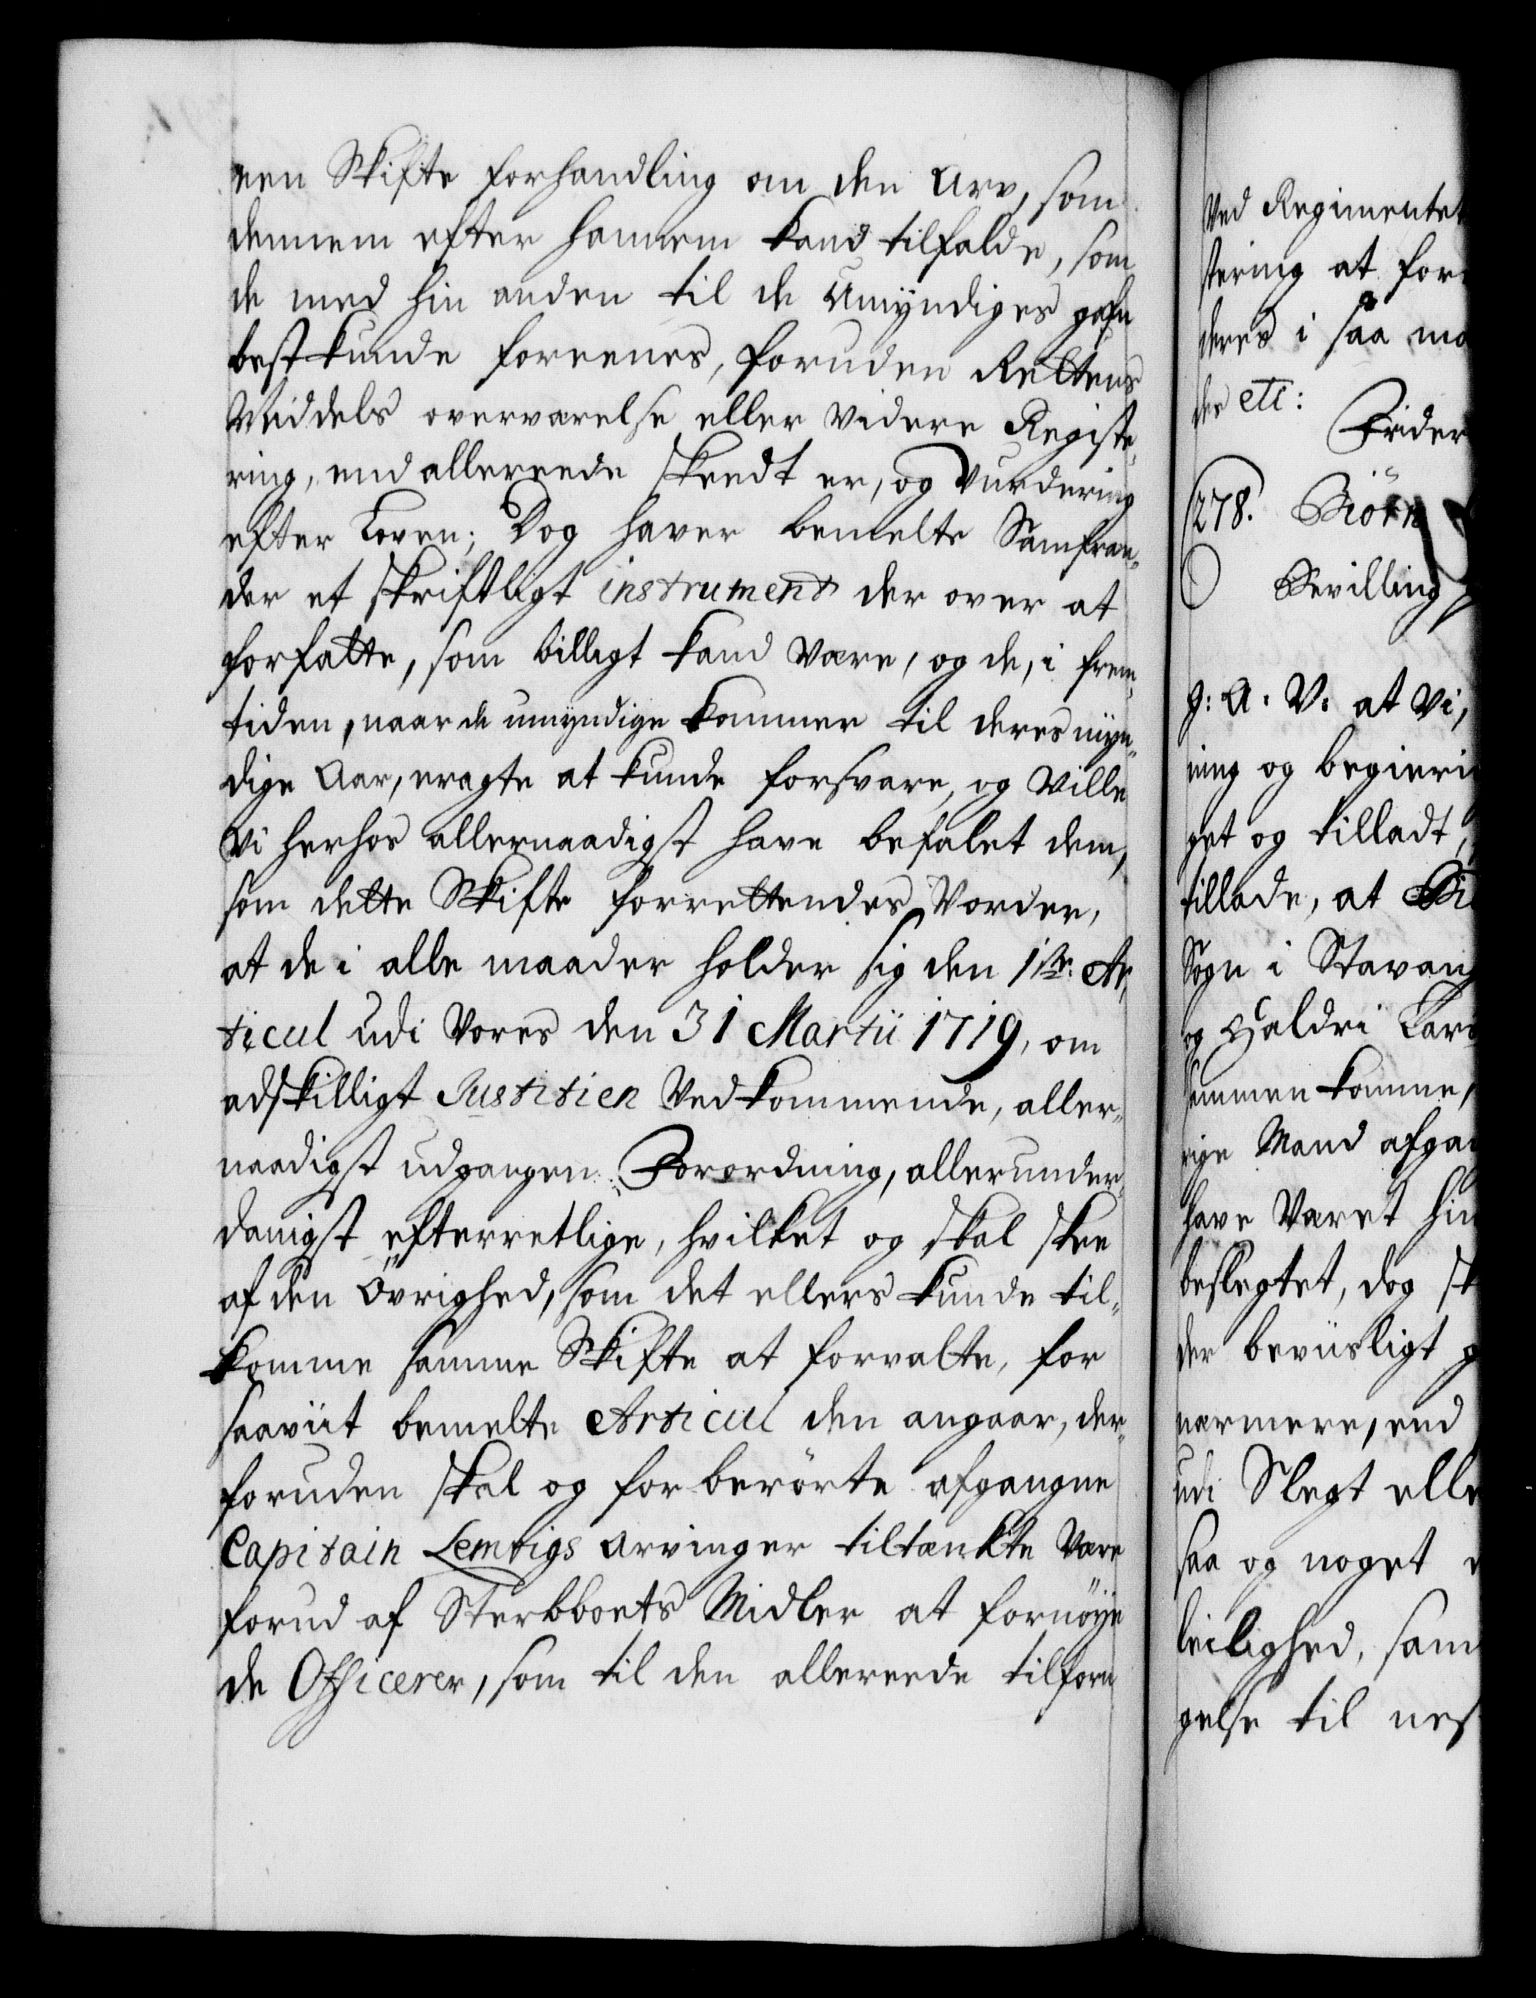 een Skifte forhandling om den Arv, som
dennem efter hannem kand tilfalde, som
de med hin anden til de Umyndiges gafn
best kunde foreenes, foruden Rettens
Middels overværelse eller videre Registe-
ring, end allereede skeedt er, og Vurdering
efter Loven; Dog haver bemelte Samfræn-
der et skriftligt instrument der over at
forfatte, som billigt kand være, og de, i frem-
tiden, naar de umyndige kommer til deres myn-
dige Aar, eragte at kunde forsvare, og Ville
Vi herhos allernaadigst have befalet dem,
som dette Skifte forrettendes Vorder,
at de i alle maader holder sig den 1ste Ar-
ticul udi Vores den 31 Martii 1719, om
adskilligt Justitien Vedkommende, aller-
naadigst udgangen Forordning, allerunder-
danigst efterretlige, hvilket og skal skee
af den Övrighed, som det ellers kunde til-
komme samme Skifte at forvalte, for
saaviit bemelte Articul den angaar, der-
foruden skal og forberörte afgangne
Capitain Lemtigs arvinger tiltænkte være
forud af Sterbboets Midler at fornöye
de Officerer, som til den allereede tilforn
Ved Regimentet
stering at for
deres i saa ma
des etc:
Frider
278. Biörn
Bevilling
G: A: V: at Vi,
ning og begieri
get og tilladt,
tillade, at Bi
Sogn i Stavang
og Haldri Lars
sammen komme,
rige Mand afga
have Været hin
beslegtet, dog sk
der beviisligt g
nærmere, end
udi Slegt elle
saa og noget
leilighed, sam
gelse til nes